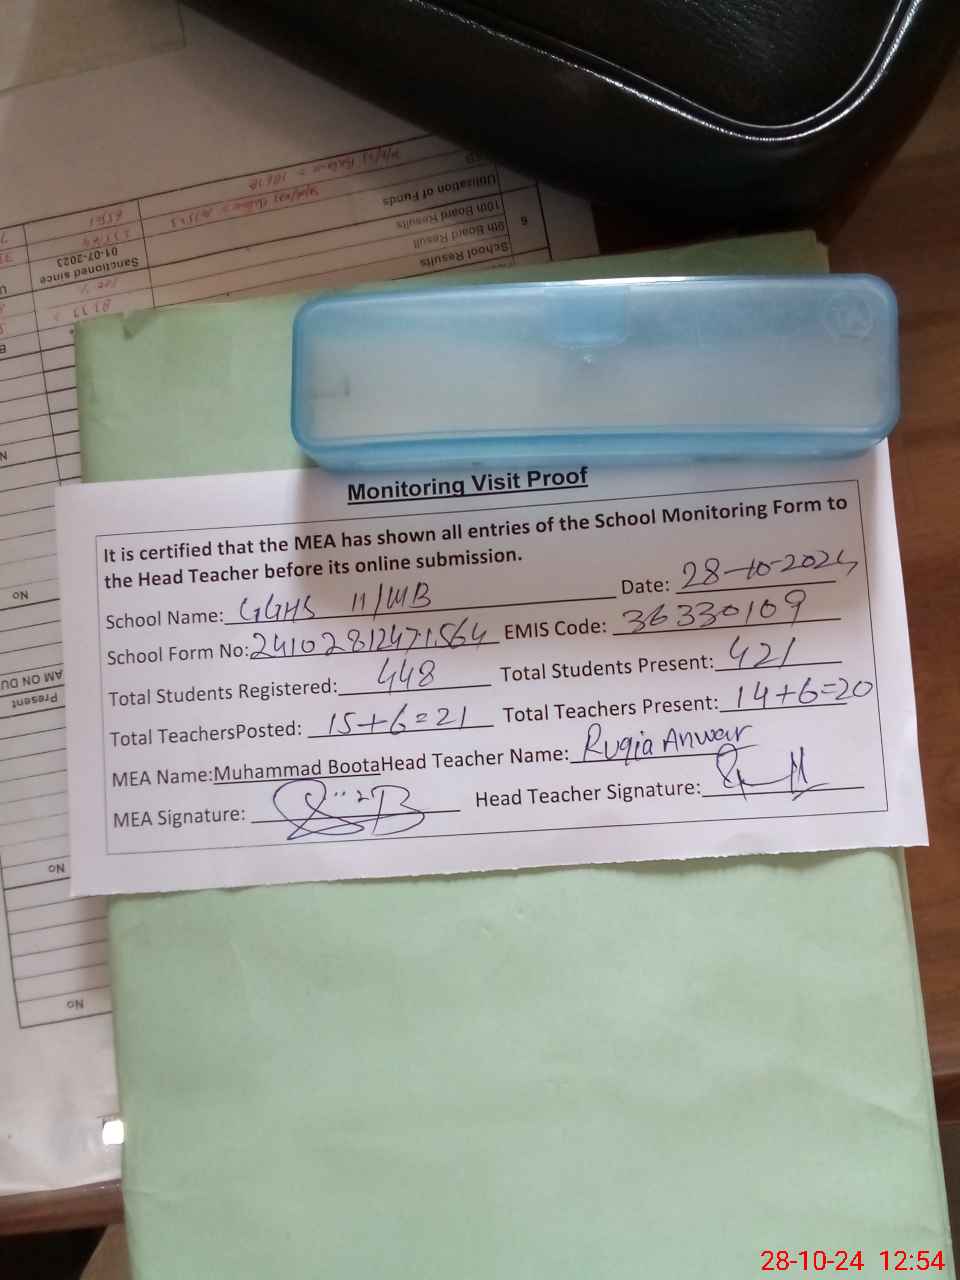 Monitoring Visit Proof
It is certified that the MEA has shown all entries of the School Monitoring Form to
the Head Teacher before its online submission.
School Name: GGHS 11/WB Date: 28-10-2024
School Form No: 24102812471564 EMIS Code: 36330109
Total Students Registered: 448 Total Students Present: 421
Total TeachersPosted: 15+6=21 Total Teachers Present: 14+6=20
MEA Name:Muhammad BootaHead Teacher Name: Ruqia Anwar
MEA Signature: Head Teacher Signature:
School Results
9th Board Result
10th Board Results
Utilization of Funds
6
Sanctioned since
01-07-2023
No
AM ON DU
Present
No
No
28-10-24 12:54